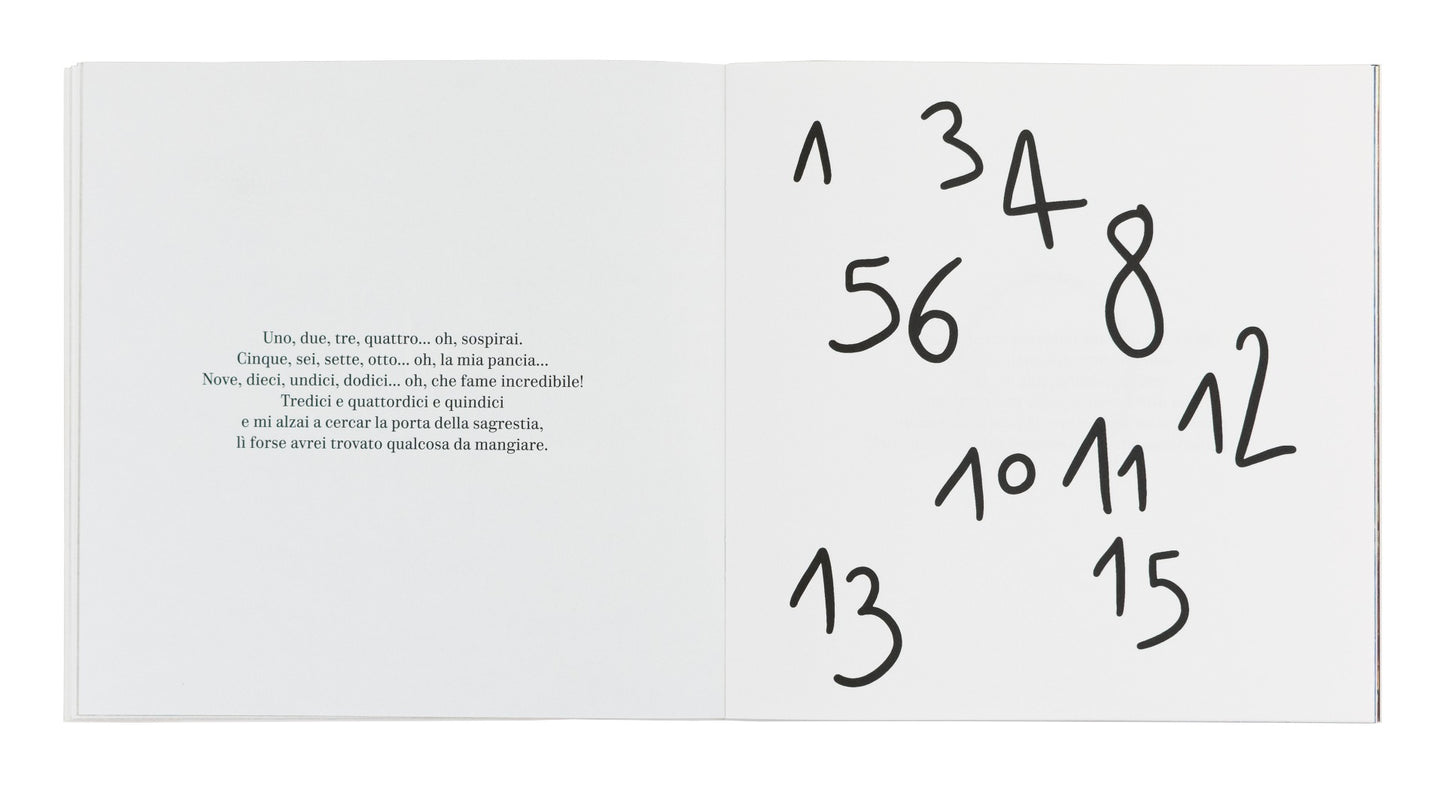 Uno, due, tre, quattro... oh, sospirai.
Cinque, sei, sette, otto... oh, la mia pancia...
Nove, dieci, undici, dodici... oh, che fame incredibile!
Tredici e quattordici e quindici
e mi alzai a cercar la porta della sagrestia,
lì forse avrei trovato qualcosa da mangiare.
1 3 4
8
5 6
12
10 11
13 15